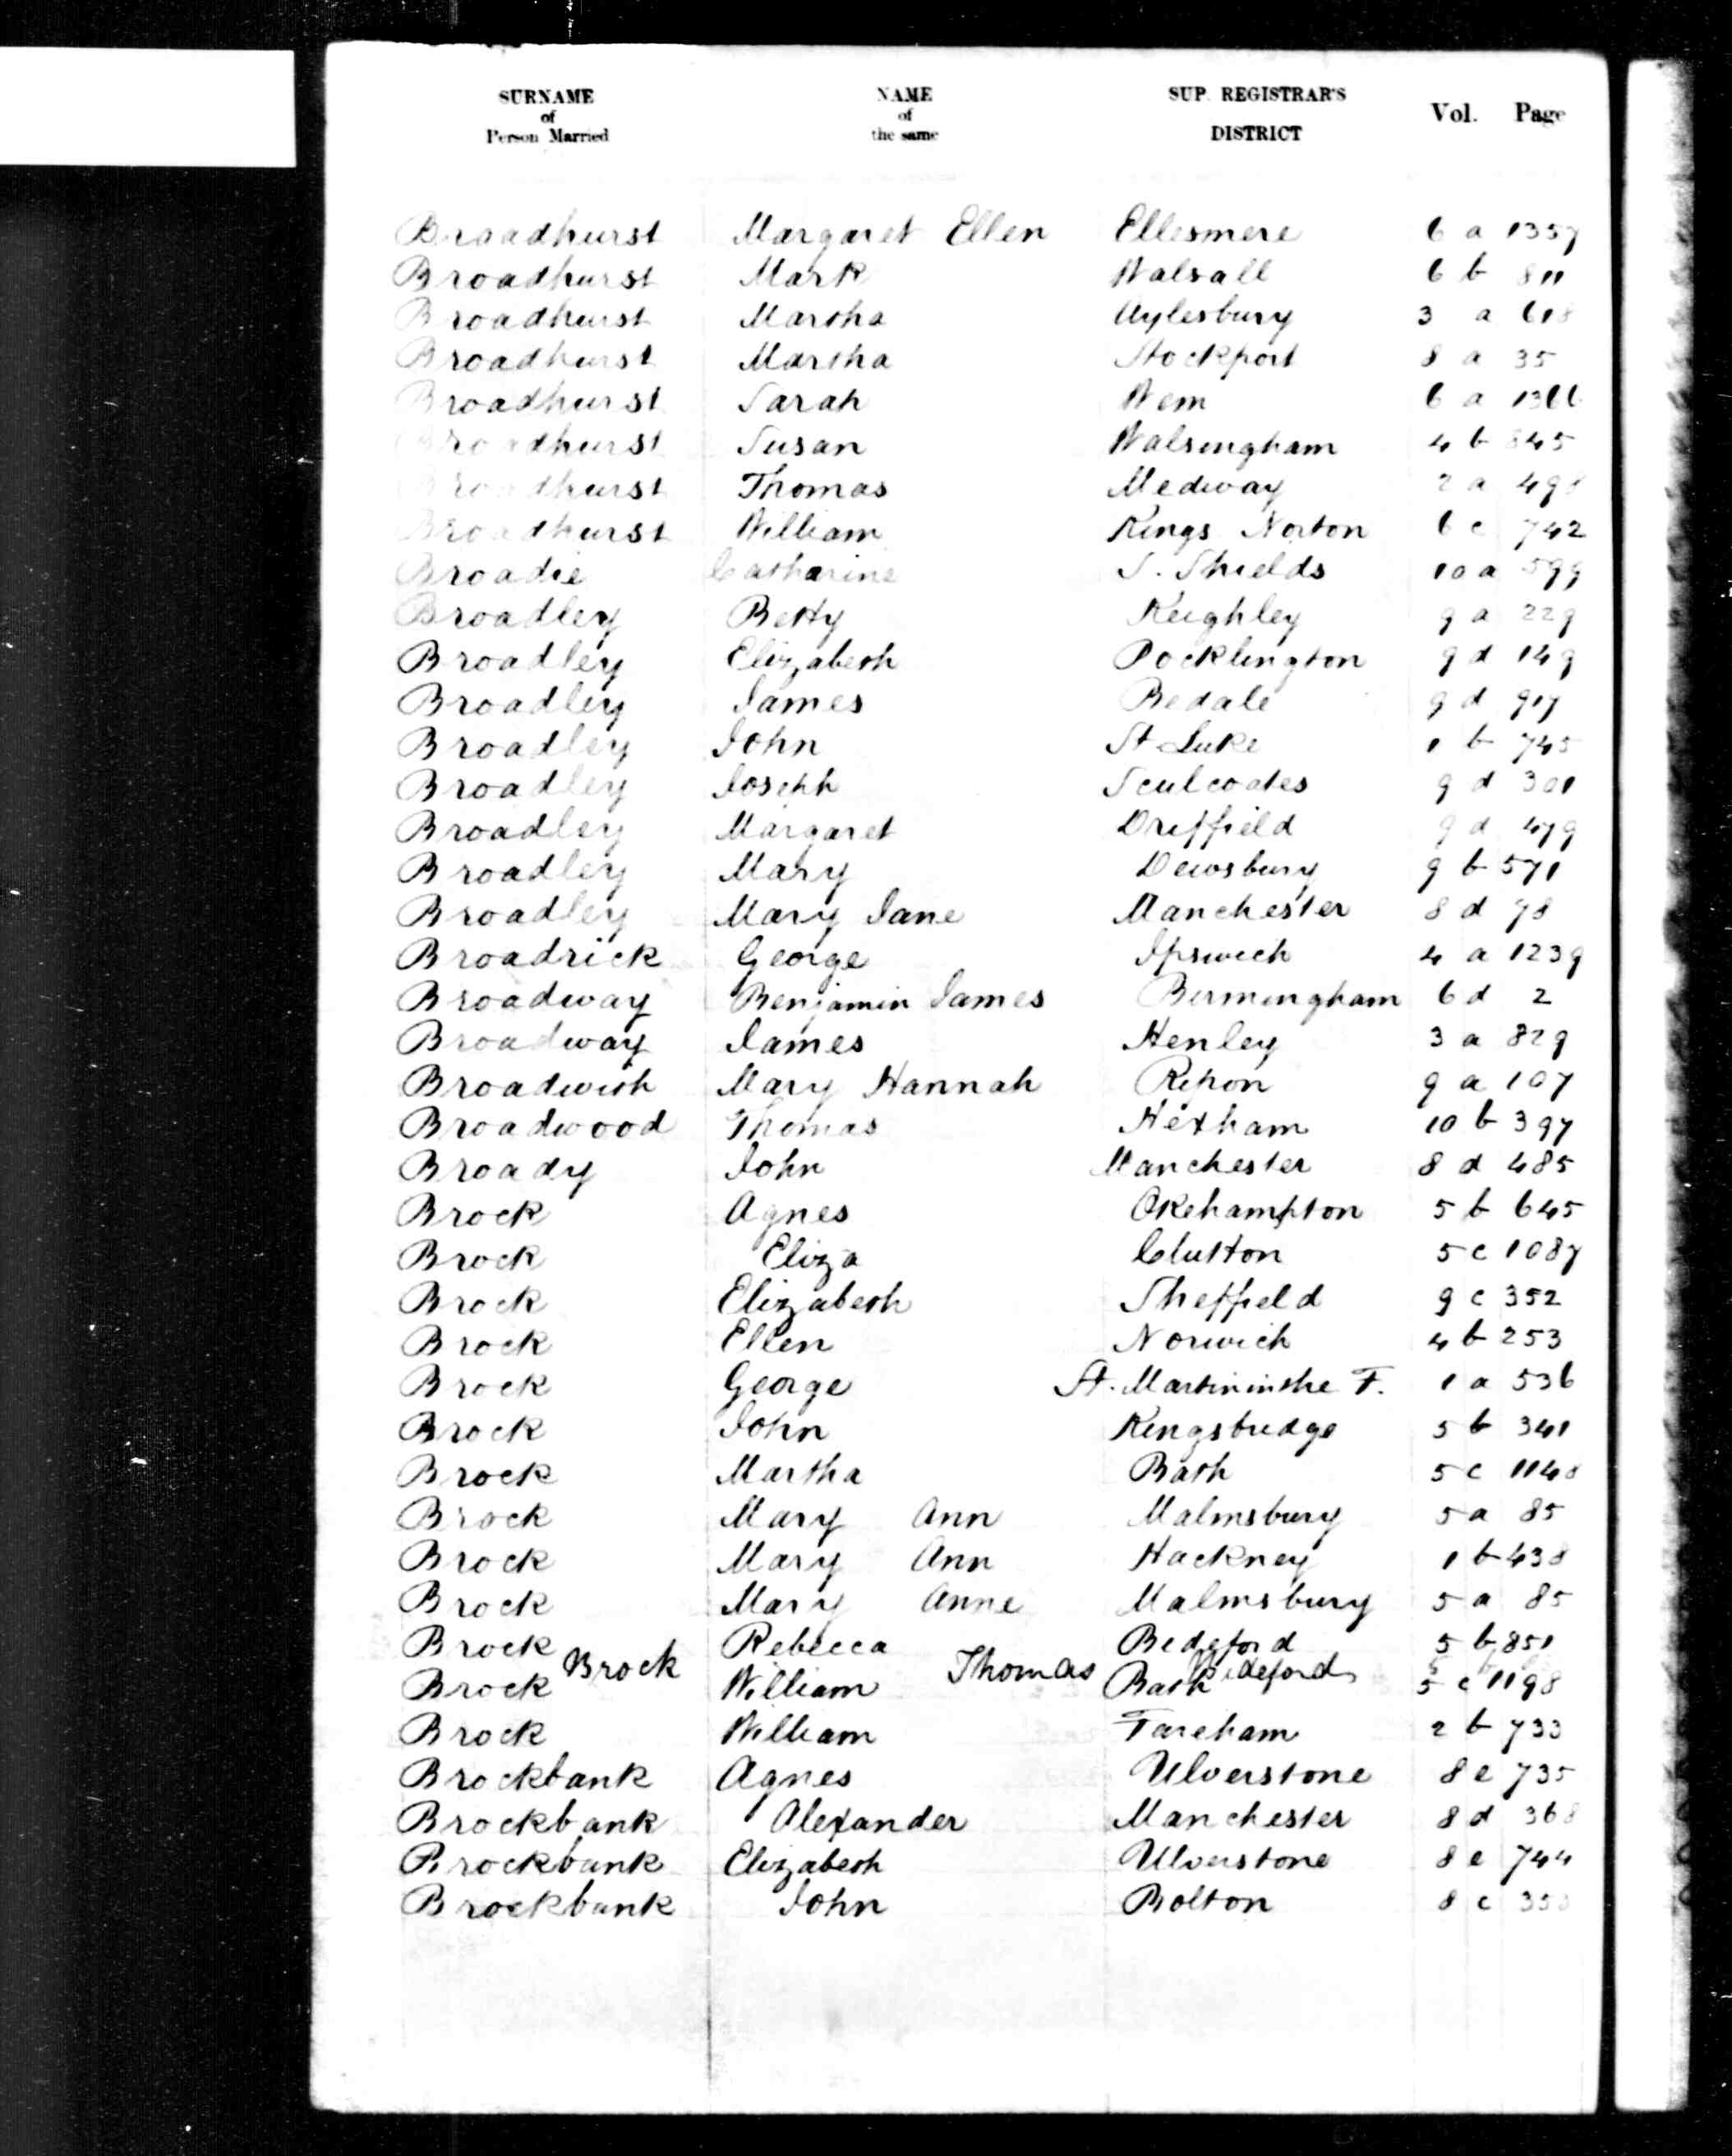 SURNAME of Person Married NAME of the same SUP. REGISTRAR'S DISTRICT Vol. Page
Broadhurst Margaret Ellen Ellesmere 6 a 1357
Broadhurst Mark Walsall 6 b 811
Broadhurst Martha Aylesbury 3 a 618
Broadhurst Martha Stockport 8 a 35
Broadhurst Sarah Wem 6 a 1366
Broadhurst Susan Walsingham 4 b 545
Broadhurst Thomas Medway 2 a 498
Broadhurst William Kings Norton 6 c 742
Broadie Catharine S. Shields 10 a 599
Broadley Betty Keighley 9 a 229
Broadley Elizabeth Pocklington 9 d 149
Broadley James Bedale 9 d 917
Broadley John St Luke 1 b 745
Broadley Joseph Sculcoates 9 d 301
Broadley Margaret Driffield 9 d 479
Broadley Mary Dewsbury 9 b 571
Broadley Mary Jane Manchester 8 d 78
Broadrick George Ipswich 4 a 1239
Broadway Benjamin James Birmingham 6 d 2
Broadway James Henley 3 a 829
Broadwith Mary Hannah Ripon 9 a 107
Broadwood Thomas Hexham 10 b 397
Broady John Manchester 8 d 485
Brock Agnes Okehampton 5 b 645
Brock Eliza Clutton 5 c 1087
Brock Elizabeth Sheffield 9 c 352
Brock Ellen Norwich 4 b 253
Brock George St. Martin in the F. 1 a 536
Brock John Kingsbridge 5 b 341
Brock Martha Bath 5 c 1148
Brock Mary Ann Malmsbury 5 a 85
Brock Mary Ann Hackney 1 b 438
Brock Mary Anne Malmsbury 5 a 85
Brock Rebecca Bedgford 5 b 851
Brock Thomas Bideford 5
Brock William Bath 5 c 1198
Brock William Fareham 2 b 733
Brockbank Agnes Ulverstone 8 e 735
Brockbank Alexander Manchester 8 d 368
Brockbank Elizabeth Ulverstone 8 e 744
Brockbank John Bolton 8 c 358